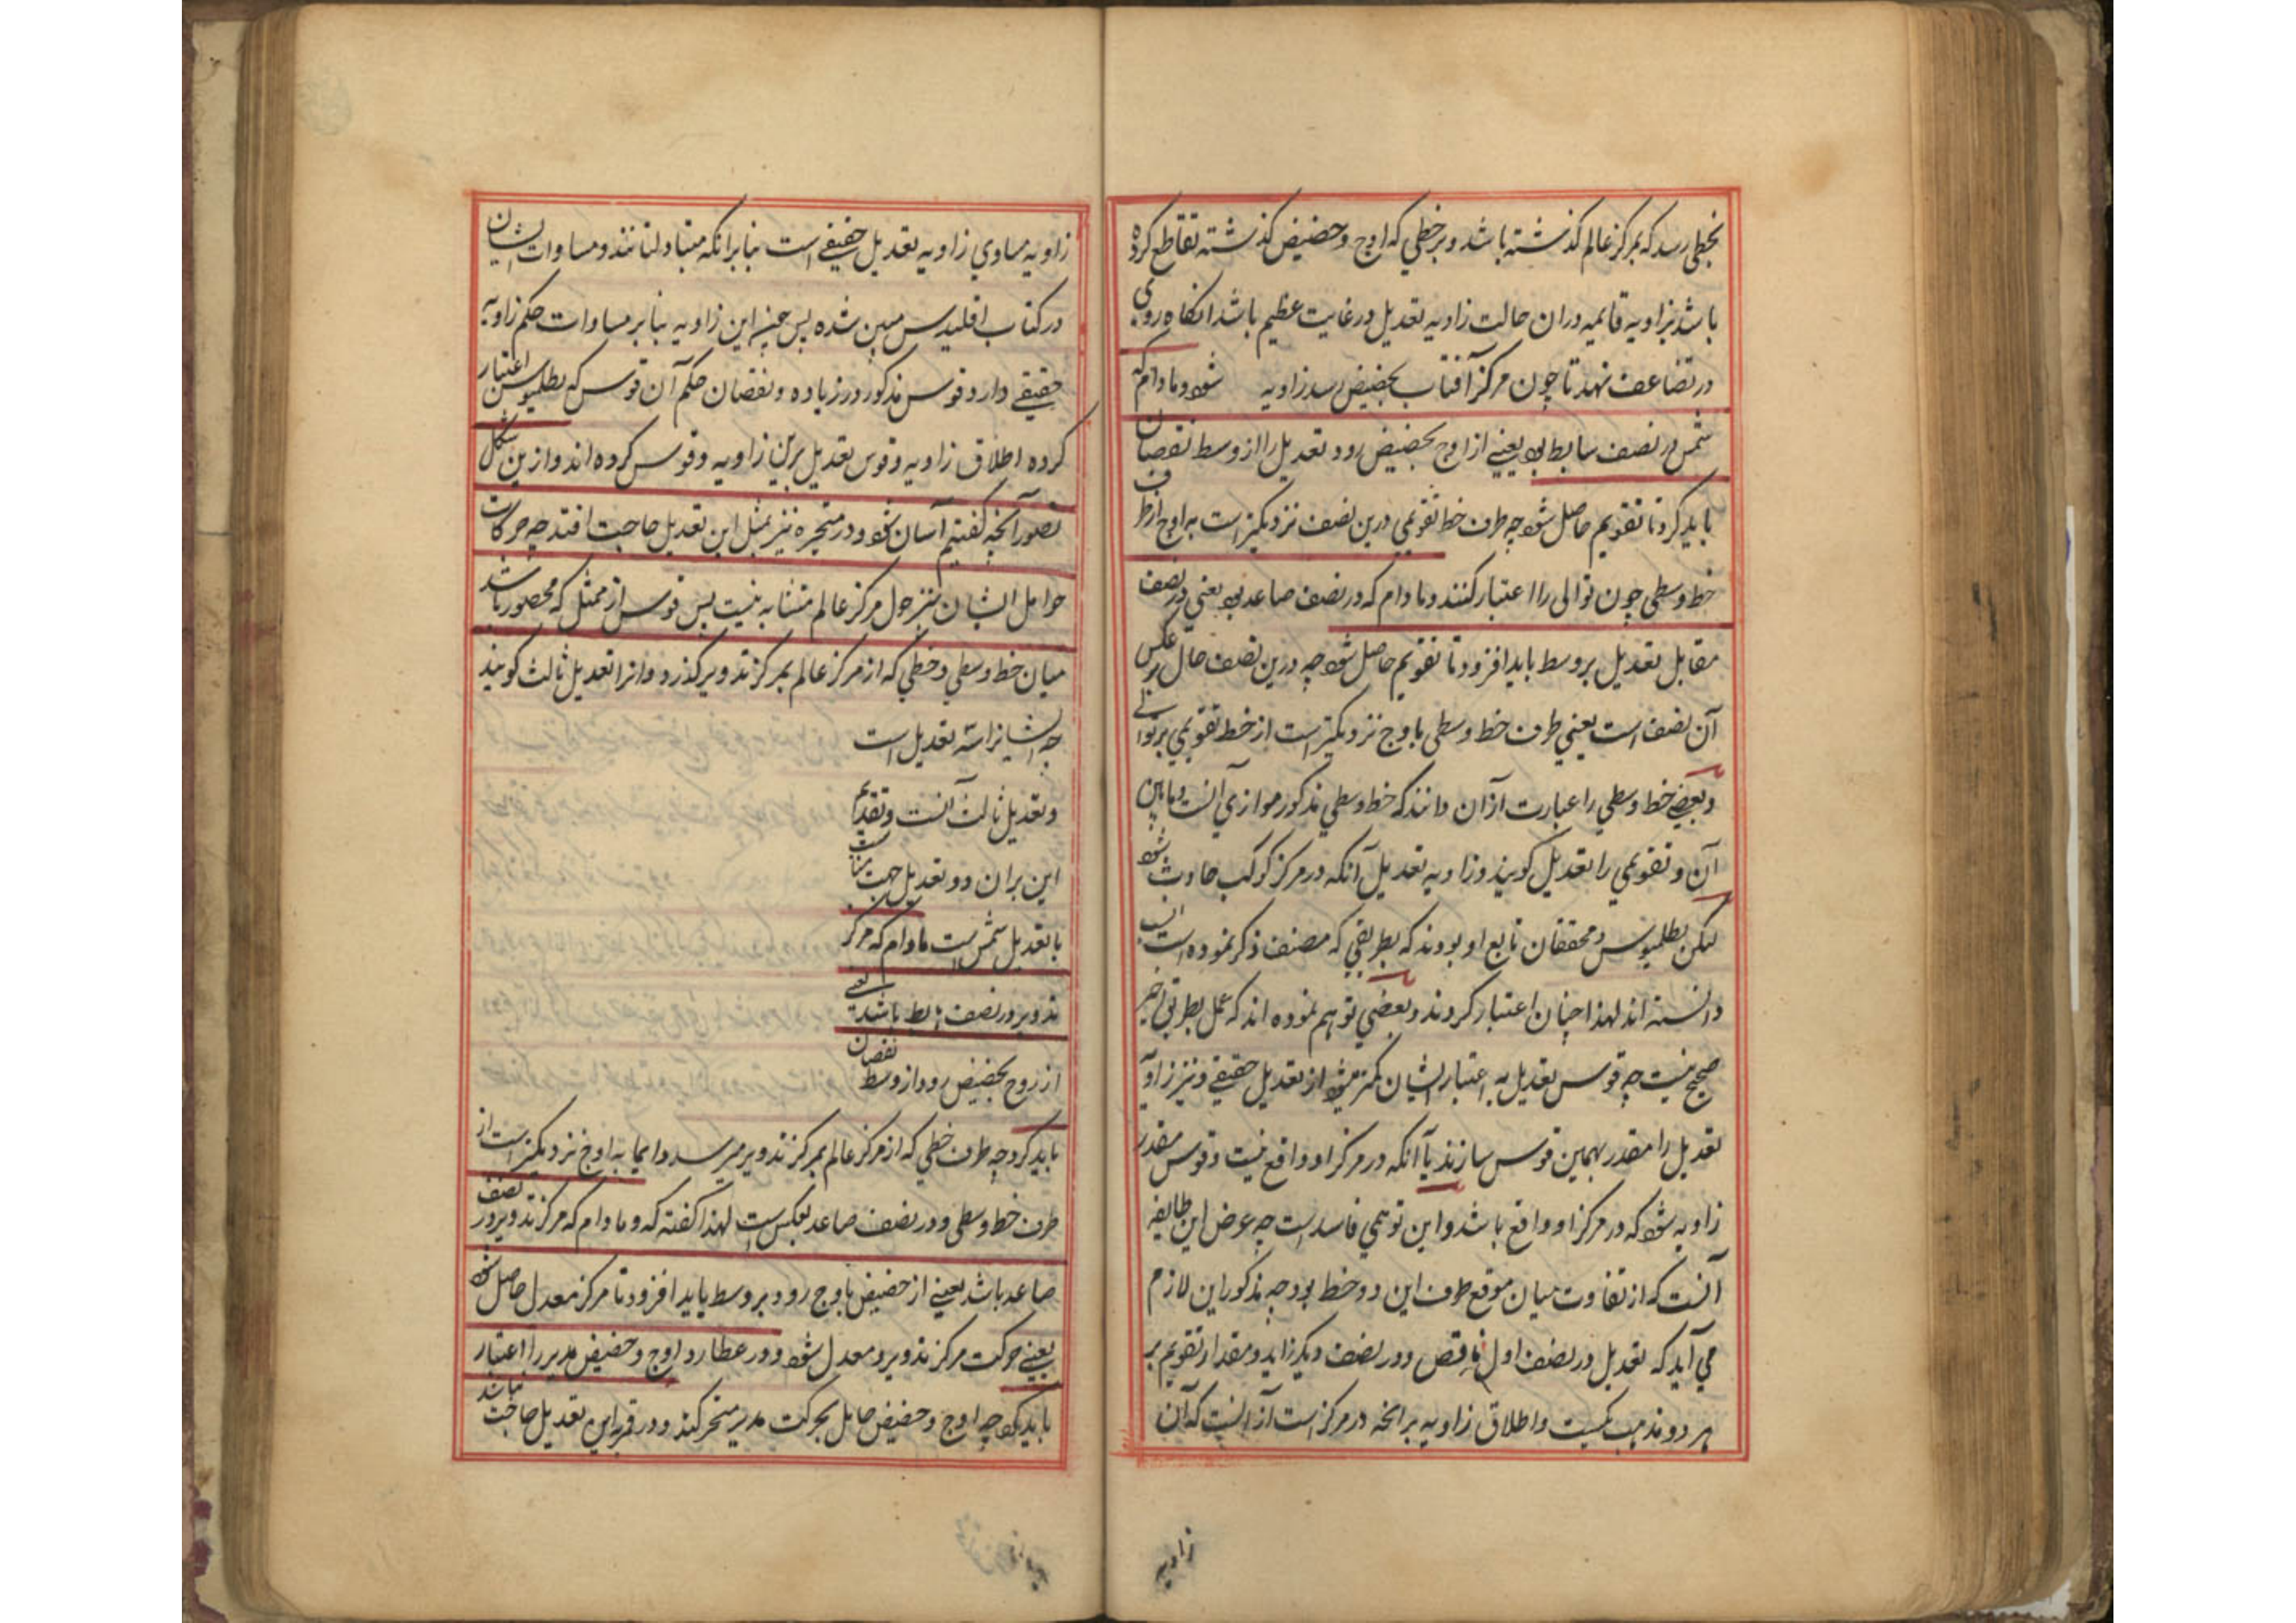 بخطی رسد که بمرکز عالم کذشته باشد و بر خطی که اوج و حضیض کذشته تقاطع کرده
باشد بزاویه قائمه دران حالت زاویه تعدیل در غایت عظیم باشد انکاه روی
در تضاعف نهد تا چون مرکز آفتاب بحضیض رسد زاویه شود و مادام که
شمس در نصف هابط بود یعنی از اوج بحضیض رود تعدیل را از وسط نقصان
باید کرد تا تقویم حاصل شود چه طرف خط تقویمی درین نصف نزدیکتر است به اوج از طرف
خط وسطی چون توالی را اعتبار کنند و مادام که در نصف صاعد بود یعنی در نصف
مقابل تعدیل بر وسط باید افزود تا تقویم حاصل شود چه درین نصف حال بر عکس
آن نصف است یعنی طرف خط وسطی باوج نزدیکتر است از خط تقویمی بر توالی
و بعضی خط وسطی را عبارت ازان دانند که خط وسطی مذکور موازی آنست و مابین
آن و تقویمی را تعدیل کویند و زاویه تعدیل آنکه در مرکز کوکب حادث شود
لیکن بطلمیوس و محققان تابع او بودند که بطریقی که مصنف ذکر نموده است انسب
دانسته اند لهذا چنان اعتبار کردند و بعضی توهم نموده اند که عمل بطریق اخیر
صحیح نیست چه قوس تعدیل به اعتبار ایشان کمتر میشود از تعدیل حقیقی و نیز زاویه
تعدیل را مقدر بهمین قوس سازند با آنکه در مرکز او واقع نیست و قوس مقدر
زاویه شود که در مرکز او واقع باشد و این توهمی فاسد است چه عرض این طایفه
آنست که از تفاوت میان موقع طرف این دو خط بوجه مذکور این لازم
می آید که تعدیل در نصف اول ناقص و در نصف دیکر زاید و مقدار تقویم بر
هر دو مذهب یکیست و اطلاق زاویه بر انچه در مرکز است از آنست که آن
زاویه
زاویه مساوی زاویه تعدیل حقیقی است بنابر انکه متبادلتانند و مساوات ایشان
در کتاب اقلیدس مبین شده پس این زاویه بنابر مساوات حکم زاویه
حقیقی دارد و قوس مذکور در زیاده و نقصان حکم آن قوس که بطلمیوس اعتبار
کرده اطلاق زاویه و قوس تعدیل برین زاویه و قوس کرده اند و ازین شکل
تصور آنچه کفتیم آسان شود و در متحیره نیز بمثل این تعدیل حاجت افتد چه حرکات
حوامل ایشان نیز حول مرکز عالم متشابه نیست پس قوس از ممثل که محصور باشد
میان خط وسطی و خطی که از مرکز عالم بمرکز تدویر کذرد و انرا تعدیل ثالث کویند
چه ایشانرا سه تعدیل است
و تعدیل ثالث آنست و تقدیم
این بران دو تعدیل جهت مناسبت
با تعدیل شمس است مادام که مرکز
تدویر در نصف هابط باشد یعنی
از اوج بحضیض رود از وسط نقصان
باید کرد چه طرف خطی که از مرکز عالم بمرکز تدویر میرسد دایما به اوج نزدیکتر است از
طرف خط وسطی و در نصف صاعد بعکس است لهذا کفته که و مادام که مرکز تدویر در نصف
صاعد باشد یعنی از حضیض باوج رود بر وسط باید افزود تا مرکز معدل حاصل شود
یعنی حرکت مرکز تدویر معدل شود و در عطارد اوج و حضیض مدیر را اعتبار
باید کرد چه اوج و حضیض حامل بحرکت مدیر متحرکند و در قمر باین تعدیل حاجت نباشد